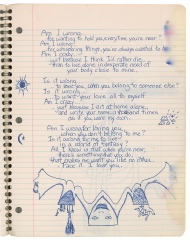 Am I wrong,
for wanting to hold you, everytime you're near?
Am I wrong,
for whispering things, you've always wanted to hear?
Am I crazy
just because I think I'd rather die...
than to live alone in desperate need of
your body close to mine.
Is it wrong
to love you, when you belong to someone else?
Is it wrong
to want your love all to myself
Am I crazy
just because I sit at home alone,
and write your name, a thousand times
as if you were my own.
Am I wrong for loving you,
when you don't belong to me?
Is it wrong for me to live
in a world of fantasy?
All I know is that when you're near,
there's something that you do,
that makes me want you like no other.
Face it. I love you.